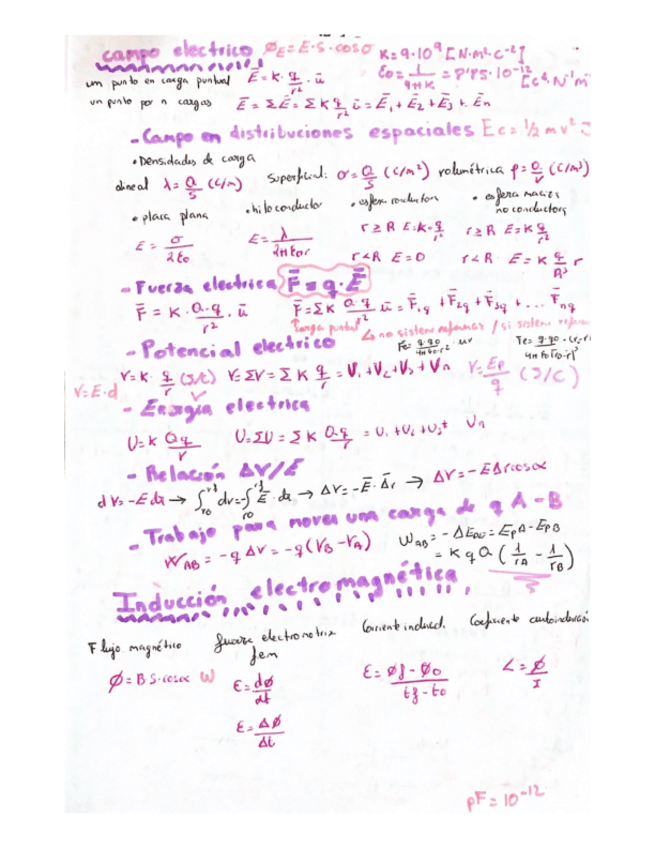 campo electrico ϕE = E·S·cosσ K = 9·10⁹ [N·m²·C⁻²]
un punto en carga puntual Ē = K · q/r² · ū εo = 1/4πK = 8'85·10⁻¹²
un punto por n cargas Ē = ΣĒ = ΣK q/r² ū = Ē₁ + Ē₂ + Ē₃ + Ēn
- Campo en distribuciones espaciales Ec = 1/2 m v²
• Densidades de carga
lineal λ = Q/S (C/m) superficial: σ = Q/S (C/m²) volumétrica ρ = Q/V (C/m³)
• placa plana • hilo conductor • esfera conductora • esfera maciza no conductora
E = σ/2εo E = λ/2πεor r≥R E = K·q/r² r≥R E = K q/r²
r<R E = 0 r<R E = K q/R³ r
- Fuerza electrica F̄ = q·Ē
F̄ = K · Q·q/r² · ū F̄ = ΣK Q·q/r² ū = F̄₁q + F̄₂q + F̄₃q + ... F̄nq
carga puntual ↳ no sistema referencia / si sistema
- Potencial electrico
V = K · q/r (J/C) V = ΣV = ΣK q/r = V₁ + V₂ + V₃ + Vn V = Ep/q (J/C)
V = E·d
- Energía electrica
U = K Qq/r U = ΣU = ΣK Q·q/r = U₁ + U₂ + U₃ + Un
- Relación ΔV/E
dV = -E dr → ∫ dv = ∫ Ē · dr → ΔV = -Ē · Δ̄r → ΔV = -EΔr cosα
- Trabajo para mover una carga de q A - B
WAB = -qΔV = -q(VB - VA) WAB = -ΔEpe = EpA - EpB
= K q Q (1/rA - 1/rB)
Inducción electromagnética
Flujo magnético fuerza electromotriz fem Corriente induced. Coeficiente autoinducción
ϕ = B·S·cosα W ε = dϕ/dt ε = ϕf - ϕo/tf - to L = ϕ/I
ε = Δϕ/Δt
pF = 10⁻¹²